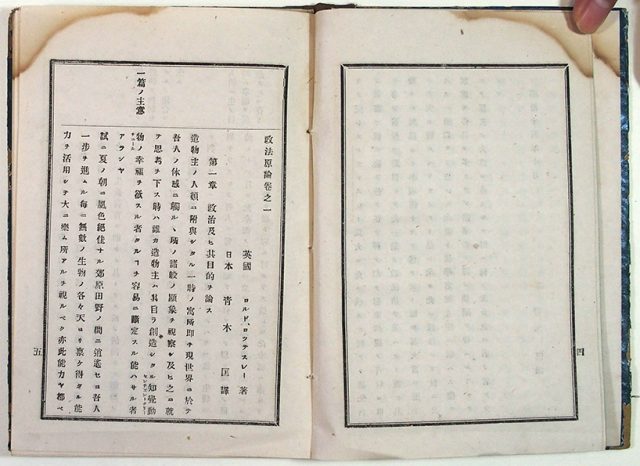 四
政法原論卷之一
英國 ロルド、ロツテスレー 著
日本 青木 匡 譯
第一章 政治及ヒ其目的ヲ論ス
造物主ノ人類ニ附與シタル一時ノ寓所即チ現世界ニ於テ
吾人ノ体感ニ觸ルヽ所ノ諸般ノ顯象ヲ視察シ及ヒ之ニ就
テ思考ヲ下ス時ハ誰カ造物主ム其自ラ創造シタル知覺動
物ノ幸福ヲ欲スル者タルコヲ容易ニ鑑定スル能ハサル者
アランヤ
試ニ夏ノ朝ニ景色絕佳ナル郊原田野ノ間ニ逍遙セヨ吾人
一步ヲ進ムル每ニ無數ノ生物ノ各々天ヨリ稟ケ得タル能
力ヲ活用シテ大ニ樂ム所アルヲ視ルベク亦此能力ヤ都ベ
一篇ノ主意
五